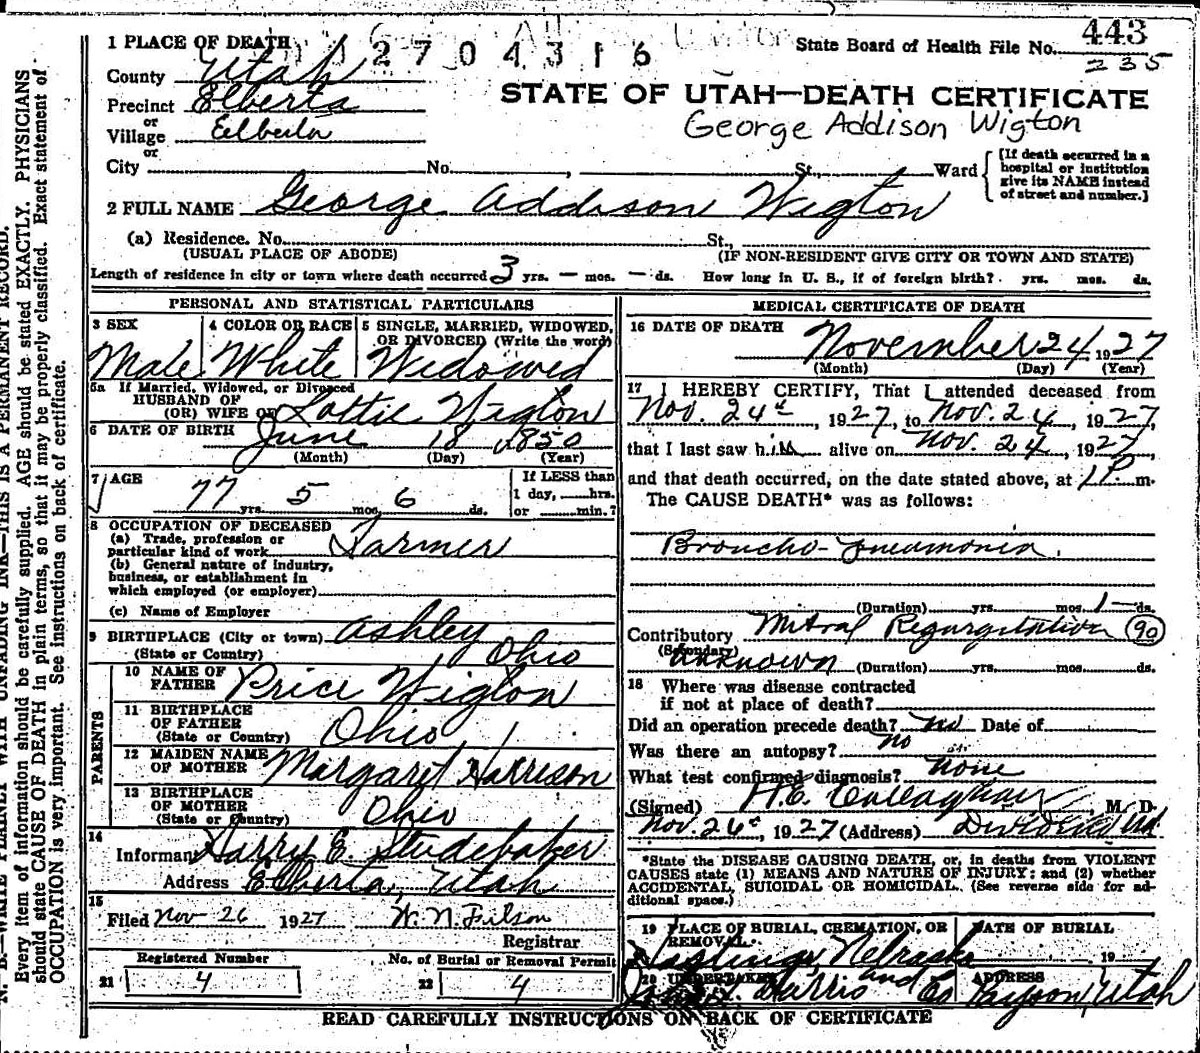 1 PLACE OF DEATH
2704316
State Board of Health File No. 443
235
County Utah
Precinct Elberta
or
Village Eelberta
or
STATE OF UTAH—DEATH CERTIFICATE
George Addison Wigton
City No. , St., Ward
[If death occurred in a
hospital or institution
give its NAME instead
of street and number.]
2 FULL NAME George Addison Wigton
(a) Residence. No. St.,
(USUAL PLACE OF ABODE) (IF NON-RESIDENT GIVE CITY OR TOWN AND STATE)
Length of residence in city or town where death occurred 3 yrs. — mos. — ds. How long in U. S., if of foreign birth? yrs. mos. ds.
PERSONAL AND STATISTICAL PARTICULARS
3 SEX 4 COLOR OR RACE 5 SINGLE, MARRIED, WIDOWED,
OR DIVORCED (Write the word)
Male White Widowed
5a If Married, Widowed, or Divorced
HUSBAND OF
(OR) WIFE OF Lottie Wigton
6 DATE OF BIRTH June 18 1850
(Month) (Day) (Year)
7 AGE 77 yrs. 5 mos. 6 ds.
If LESS than
1 day, hrs.
or min.?
8 OCCUPATION OF DECEASED
(a) Trade, profession or
particular kind of work Farmer
(b) General nature of industry,
business, or establishment in
which employed (or employer)
(c) Name of Employer
9 BIRTHPLACE (City or town) Ashley
(State or Country) Ohio
PARENTS
10 NAME OF
FATHER Price Wigton
11 BIRTHPLACE
OF FATHER
(State or Country) Ohio
12 MAIDEN NAME
OF MOTHER Margaret Harrison
13 BIRTHPLACE
OF MOTHER
(State or Country) Ohio
14
Informant Harry E. Studebaker
Address Elberta, Utah
15
Filed Nov 26 1927 W. N. Filson
Registrar
Registered Number No. of Burial or Removal Permit
21 4 22 4
MEDICAL CERTIFICATE OF DEATH
16 DATE OF DEATH
November 24, 1927
(Month) (Day) (Year)
17 I HEREBY CERTIFY, That I attended deceased from
Nov. 24th, 1927, to Nov. 24, 1927,
that I last saw him alive on Nov. 24, 1927,
and that death occurred, on the date stated above, at 1 P. m.
The CAUSE DEATH* was as follows:
Broncho-pneumonia.
(Duration) yrs. mos. 1 — ds.
Contributory Mitral Regurgitation 90
(Secondary)
unknown (Duration) yrs. mos. ds.
18 Where was disease contracted
if not at place of death?
Did an operation precede death? no Date of
Was there an autopsy? no
What test confirmed diagnosis? none
(Signed) H.E. Callaghan, M. D.
Nov. 26th, 1927 (Address) Dividend Ut
*State the DISEASE CAUSING DEATH, or, in deaths from VIOLENT
CAUSES state (1) MEANS AND NATURE OF INJURY; and (2) whether
ACCIDENTAL, SUICIDAL OR HOMICIDAL. (See reverse side for ad-
ditional space.)
19 PLACE OF BURIAL, CREMATION, OR
REMOVAL. DATE OF BURIAL
Hastings, Nebraska 19
20 UNDERTAKER ADDRESS
Harris and Co Payson, Utah
READ CAREFULLY INSTRUCTIONS ON BACK OF CERTIFICATE
N. B.—WRITE PLAINLY WITH UNFADING INK—THIS IS A PERMANENT RECORD.
Every item of information should be carefully supplied. AGE should be stated EXACTLY. PHYSICIANS
should state CAUSE OF DEATH in plain terms, so that it may be properly classified. Exact statement of
OCCUPATION is very important. See instructions on back of certificate.